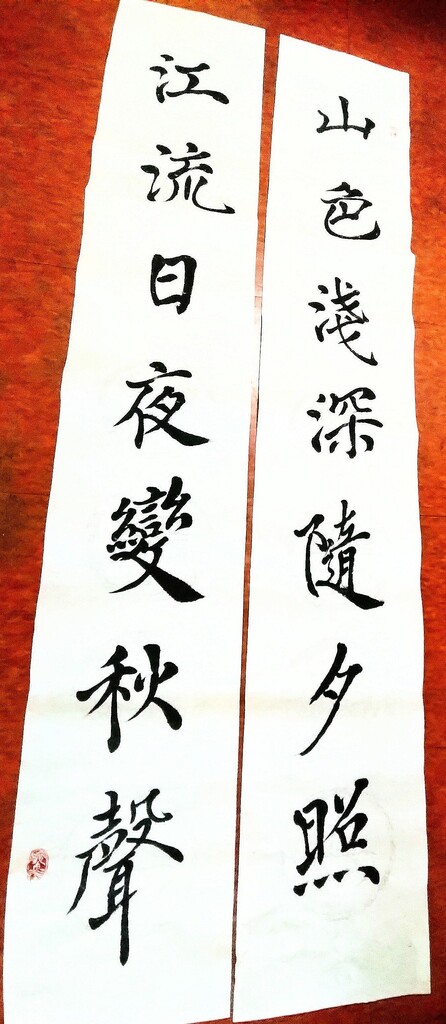 山色淺深隨夕照
江流日夜變秋聲